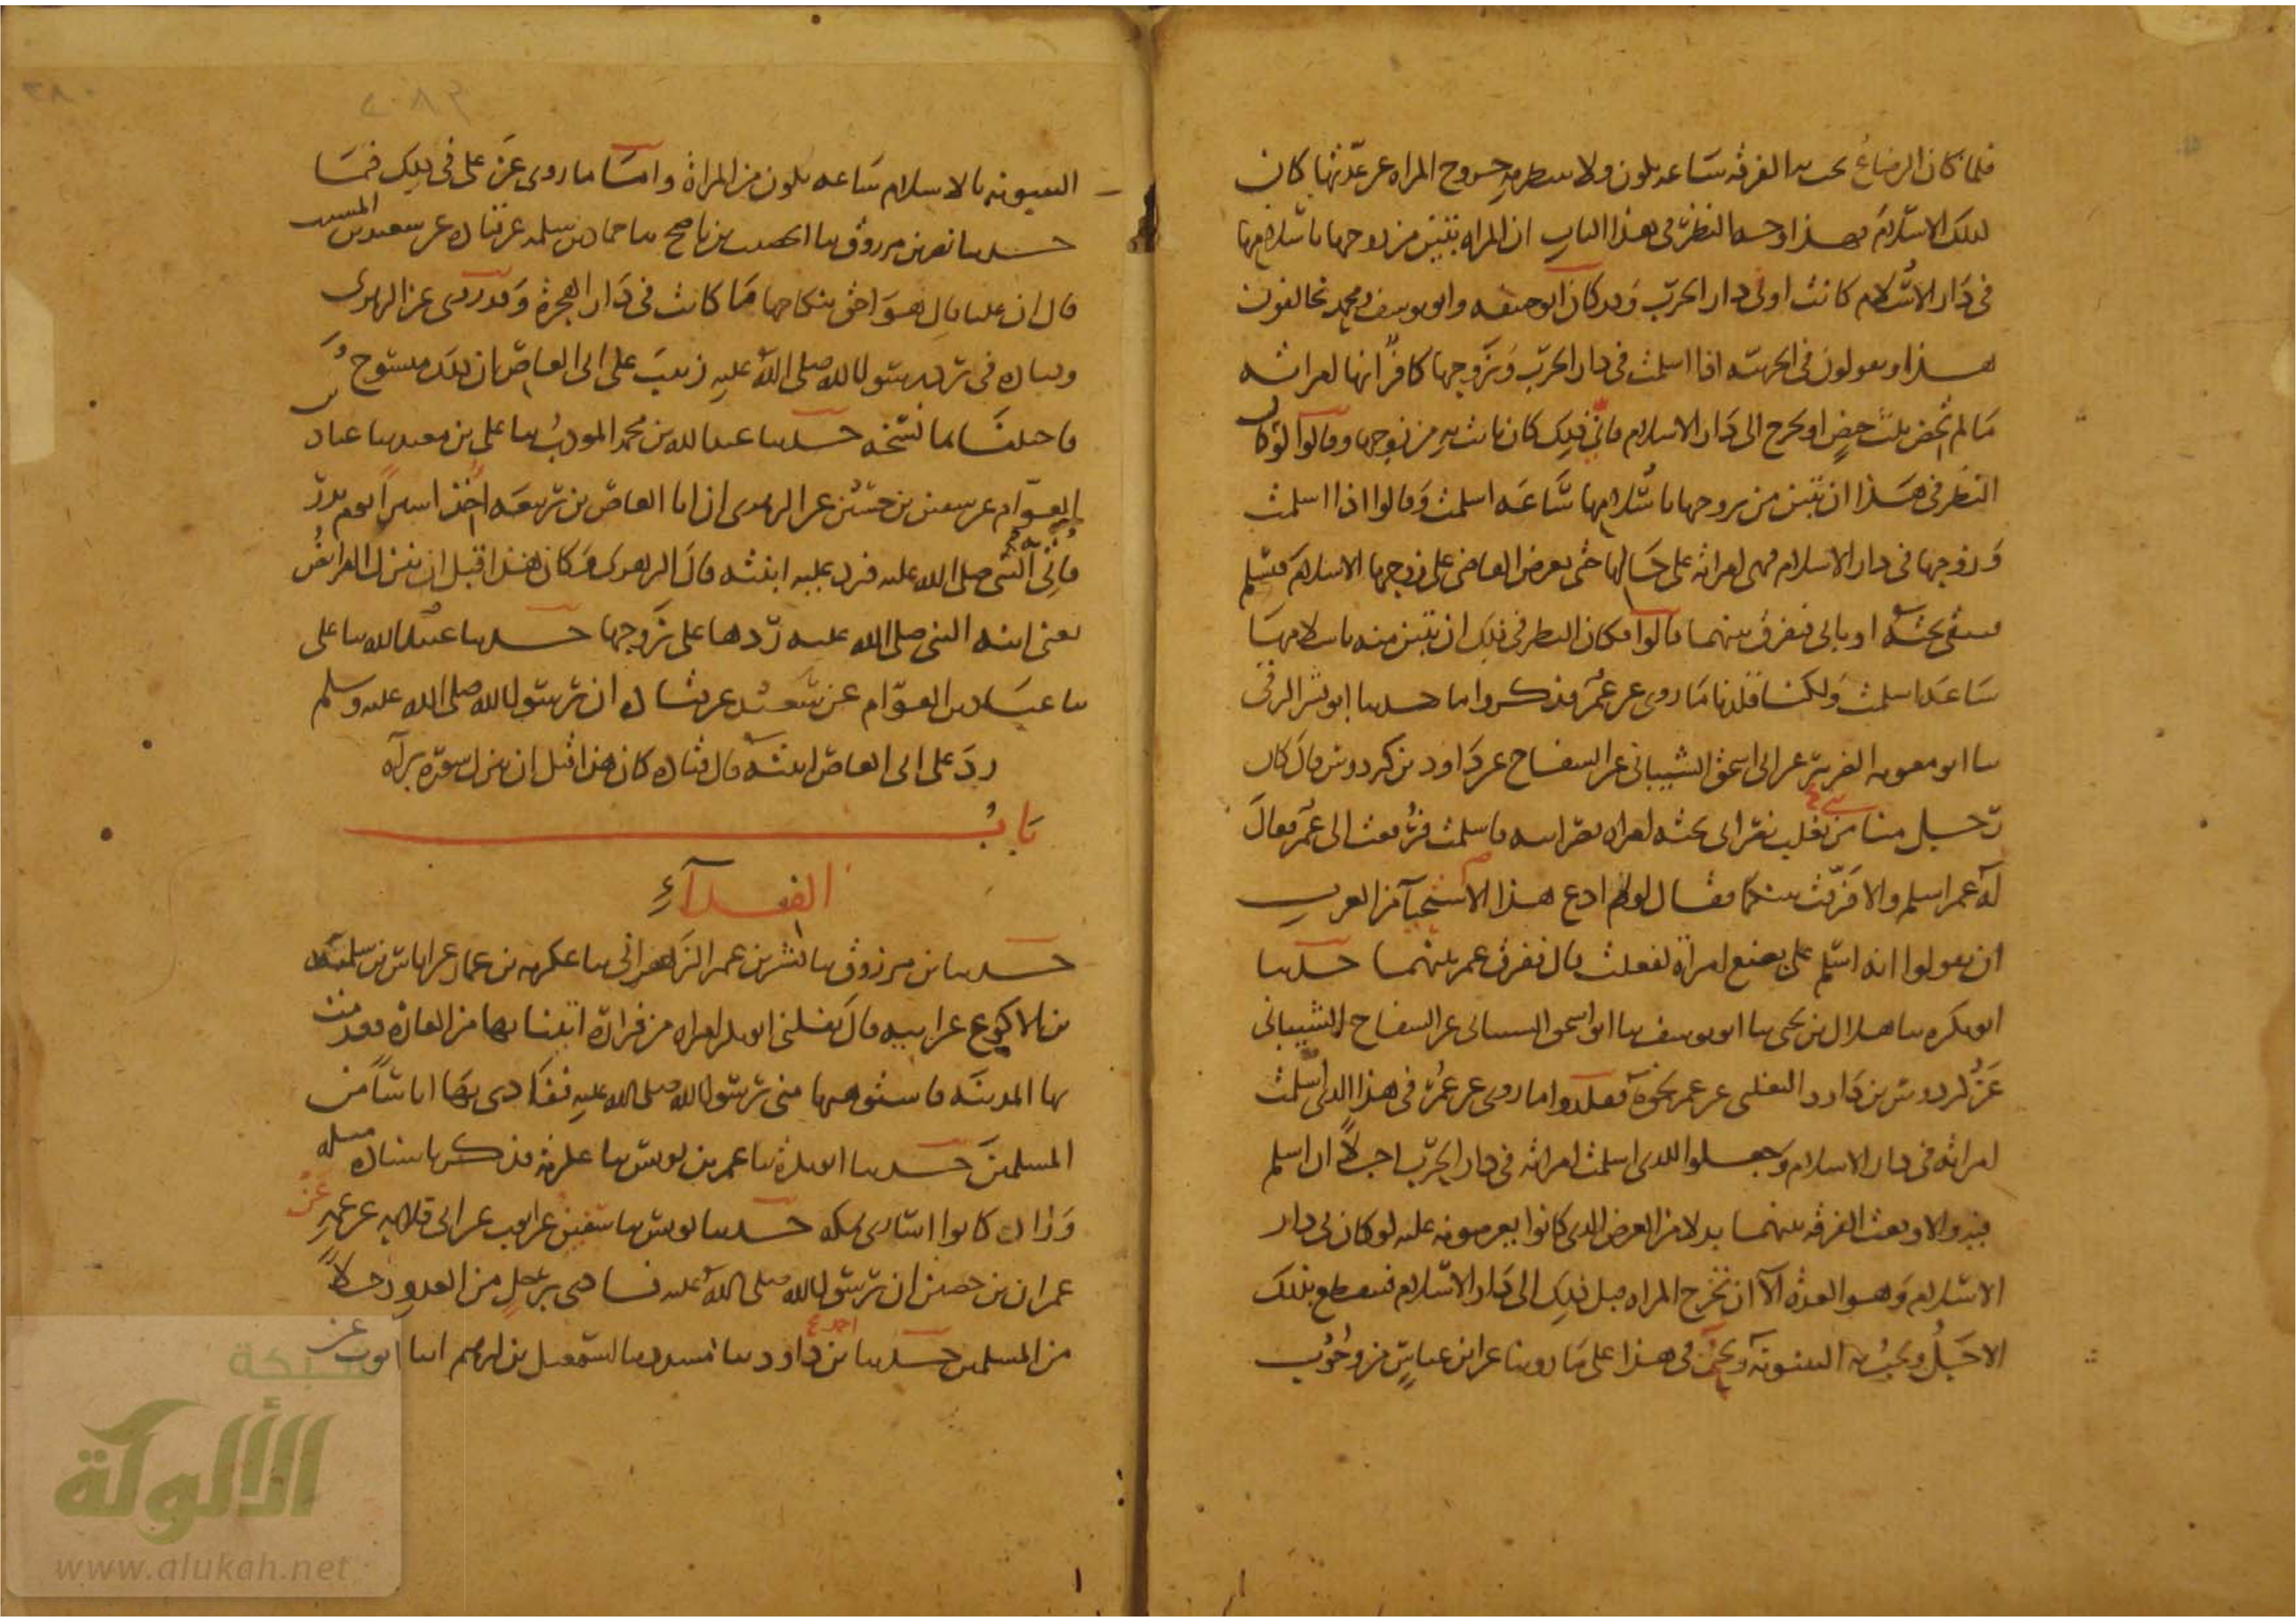 فلما كان الرضاع يجب به الفرقة ساعة يكون ولا ينتظر به خروج المراة عن عدتها كان
كذلك الاسلام فهذا وجه النظر في هذا الباب ان المراة تبين من زوجها باسلامها
في دار الاسلام كانت او في دار الحرب وقد كان ابو حنيفه وابو يوسف ومحمد يخالفون
هذا ويقولون في الحربيه اذا اسلمت في دار الحرب وزوجها كافر انها امراته
ما لم تحض ثلث حيض او تخرج الى دار الاسلام فاي ذلك كان بانت به من زوجها وقالوا لو كان
النظر في هذا ان تبين من زوجها باسلامها ساعه اسلمت وقالوا اذا اسلمت
وزوجها في دار الاسلام فهي امراته على حالها حتى يعرض القاضي على زوجها الاسلام فيسلم
فتبقى تحته او يابى فيفرق بينهما قالوا فكان النظر في ذلك ان تبين منه باسلامها
ساعة اسلمت ولكنا قلدنا ما روي عن عمر فذكروا ما حدثنا ابو بشر الرقي
ثنا ابو معويه الضرير عن ابي اسحق الشيباني عن السفاح عن داود بن كردوس قال كان
رجل منا من بني تغلب نصراني تحته امراه نصرانيه فاسلمت فرفعت الى عمر فقال
له عمر اسلم والا فرقت بينكما فقال له لم ادع هذا الا استحيآ من العرب
ان يقولوا انه اسلم على بضع امراة لفعلت قال ففرق عمر بينهما حدثنا
ابو بكره ثنا هلال بن يحيى ثنا ابو يوسف ثنا ابو اسحق الشيباني عن السفاح الشيباني
عن كردوس بن داود التغلبي عن عمر نحوه فقلدوا ما روي عن عمر في هذا الذي اسلمت
امراته في دار الاسلام وجعلوا للذي اسلمت امراته في دار الحرب اجلا ان اسلم
فيه والا وقعت الفرقه بينهما بدلا من العرض الذي كانوا يعرضونه عليه لو كان في دار
الاسلام وهو العدة الا ان تخرج المراه قبل ذلك الى دار الاسلام فينقطع بذلك
الاجل ويجب به البينونه ونحن في هذا على ما روينا عن ابن عباس من وجوب
البينونه بالاسلام ساعه يكون من المراة واما ما روي عن علي في ذلك فما
حدثنا نصر بن مرزوق ثنا الخصيب بن ناصح ثنا حماد بن سلمه عن قتاده عن سعيد بن المسيب
قال ان عليا قال هو احق بنكاحها ما كانت في دار الهجرة وقد روي عن الزهري
وقتاده في رد رسول الله صلى الله عليه زينب على ابي العاص ان ذلك منسوخ و
فاختلفا لما نسخه حدثنا عبد الله بن محمد المودب ثنا علي بن معبد ثنا عباد بن
العوام عن سفين بن حسين عن الزهري ان ابا العاص بن ربيعه اخذ اسيرا يوم بدر
فاتي به النبي صلى الله عليه فرد عليه ابنته قال الزهري وكان هذا قبل ان تنزل الفرايض
يعني ابنه النبي صلى الله عليه ردها على زوجها حدثنا عبيد الله ثنا علي
ثنا عباد بن العوام عن سعيد عن قتاده ان رسول الله صلى الله عليه وسلم
رد على ابي العاص ابنته قال قتاده كان هذا قبل ان تنزل سورة برآه
باب
الفدآء
حدثنا بن مرزوق ثنا بشر بن عمر الزهراني ثنا عكرمه بن عمار عن اياس بن سلمه
بن الاكوع عن ابيه قال نفلني ابو بكر امراه من فزارة اتيت بها من الغارة فقدمت
بها المدينه فاستوهبها مني رسول الله صلى الله عليه ففادى بها اناسا من
المسلمين حدثنا ابو بكرة ثنا عمر بن يونس ثنا عكرمه فذكر باسناده مثله
وزاد كانوا اسارى بمكه حدثنا يونس ثنا سفين عن ايوب عن ابي قلابه عن عمه عن
عمران بن حصين ان رسول الله صلى الله عليه فادى برجل من العدو رجلا
من المسلمين حدثنا احمد بن داود ثنا مسدد ثنا اسمعيل بن ابرهيم انبا ايوب عن
شبكة
الألوكة
www.alukah.net